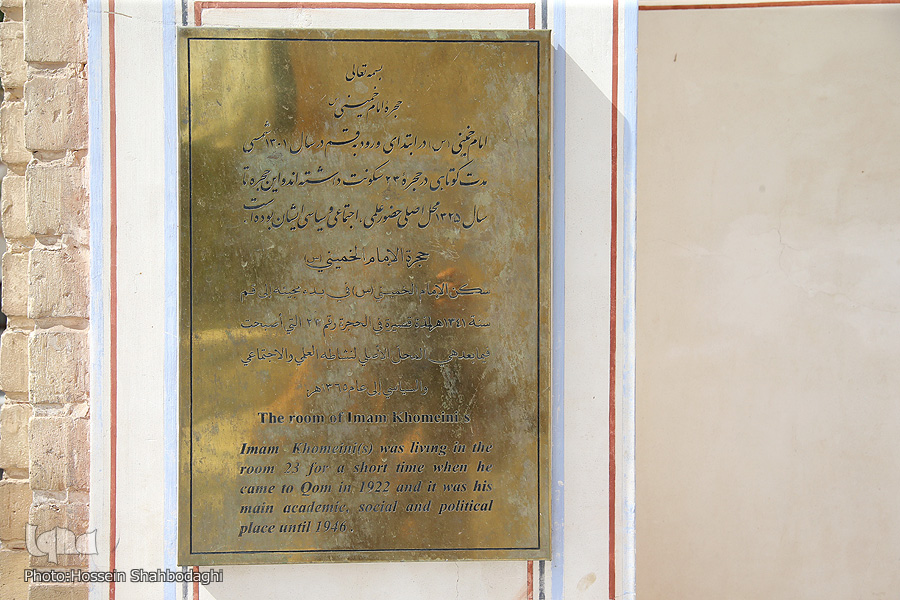 بسمه تعالی
حجره امام خمینی (س)
امام خمینی (س) در ابتدای ورود به قم در سال ۱۳۰۱ شمسی
مدت کوتاهی در حجرهٔ ۲۳ سکونت داشته‌اند و این حجره تا
سال ۱۳۲۵ محل اصلی حضور علمی، اجتماعی و سیاسی ایشان بوده است.
حجرة الإمام الخميني (س)
سكن الإمام الخميني (س) في بدء مجيئه إلى قم
سنة ۱۳٤۱هـ لمدة قصيرة في الحجرة رقم ۲۳ التي أصبحت
فيما بعد هي المحل الأصلي لنشاطه العلمي والاجتماعي
والسياسي إلى عام ۱۳٦٥هـ.
The room of Imam Khomeini s
Imam Khomeini(s) was living in the
room 23 for a short time when he
came to Qom in 1922 and it was his
main academic, social and political
place until 1946 .
Photo:Hossein Shahbodaghi